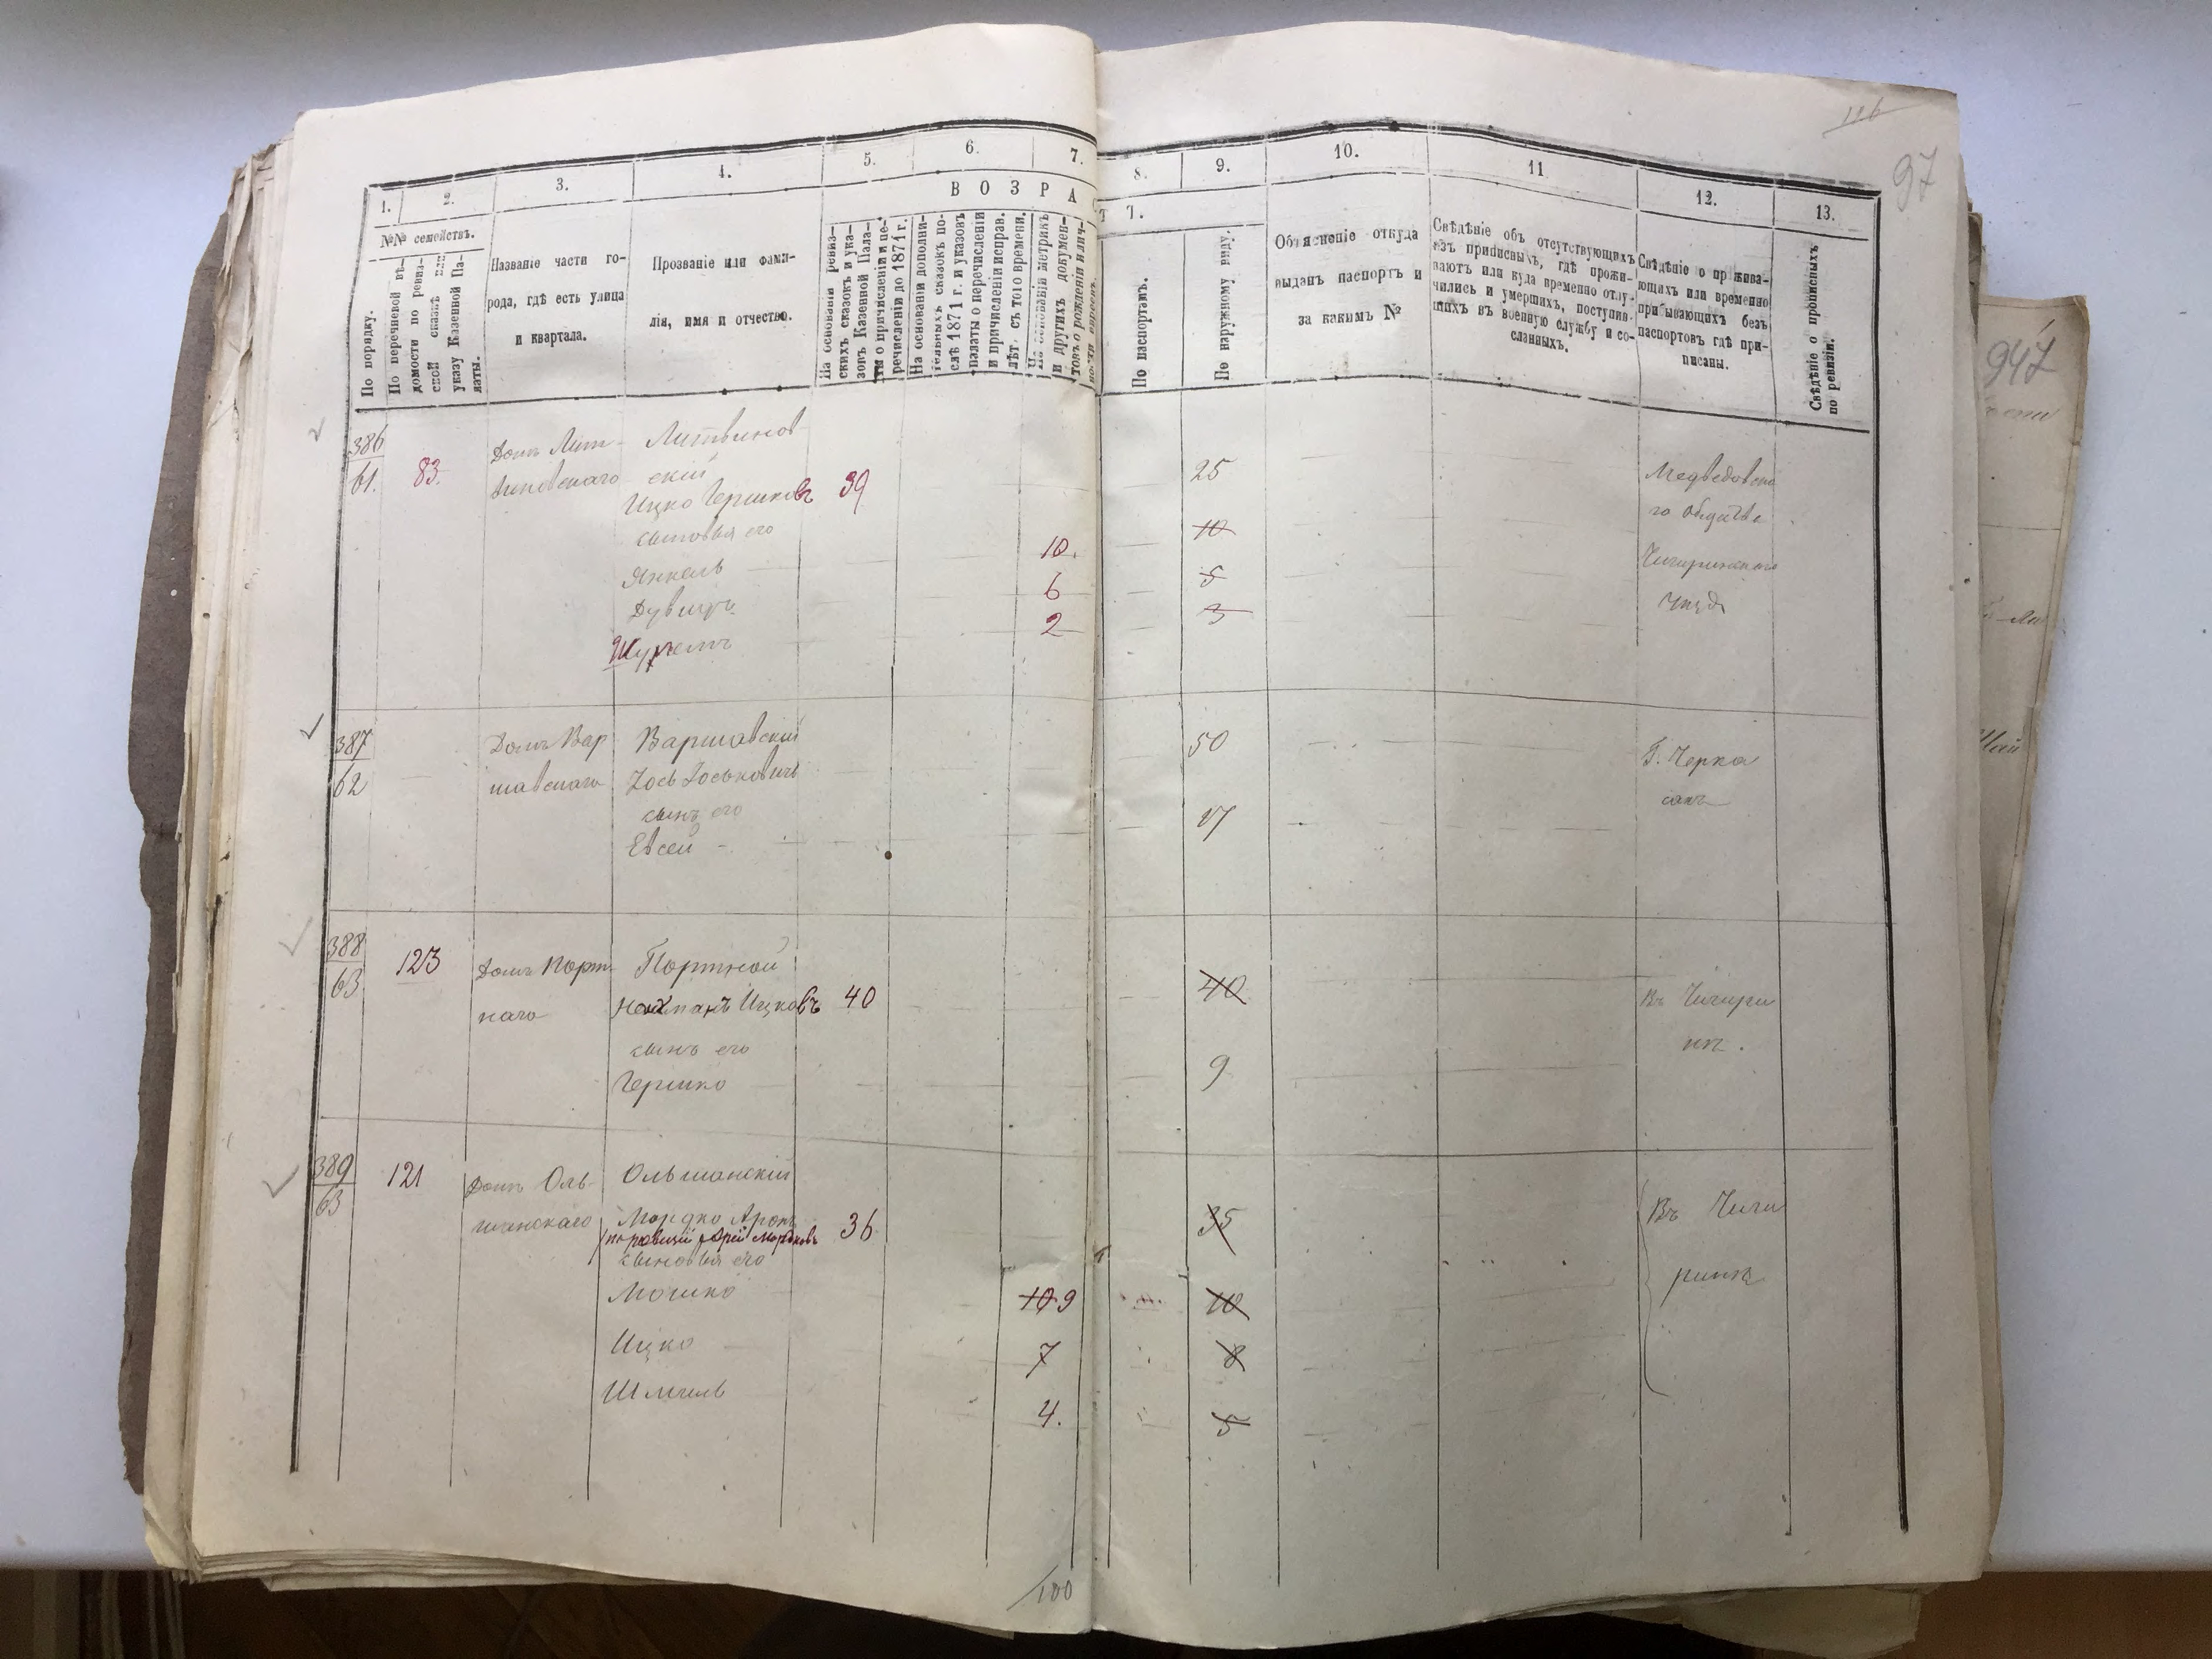 116
97
947
1.
2.
3.
4.
5.
6.
7.
8.
9.
10.
11
12.
13.
В О З Р А С
Т Ъ.
№№ семействъ.
По порядку.
По перечневой вѣ-
домости по ревиз-
ской сказкѣ или
указу Казенной Па-
латы.
Названіе части го-
рода, гдѣ есть улица
и квартала.
Прозваніе или фами-
лія, имя и отчество.
На основаніи ревиз-
скихъ сказокъ и ука-
зовъ Казенной Пала-
ты о причисленіи и пе-
речисленіи до 1871 г.
На основаніи дополни-
тельныхъ сказокъ по-
слѣ 1871 г. и указовъ
палаты о перечисленіи
и причисленіи исправ.
лѣт. съ того времени.
На основаніи метрикъ
и другихъ докумен-
товъ о рожденіи и лич-
По паспортамъ.
По наружному виду.
Объясненіе откуда
выданъ паспортъ и
за какимъ №
Свѣдѣніе объ отсутствующихъ
изъ приписныхъ, гдѣ прожи-
ваютъ или куда временно отлу-
чились и умершихъ, поступив-
шихъ въ военную службу и со-
сланныхъ.
Свѣдѣніе о прожива-
ющихъ или временно
прибывающихъ безъ
паспортовъ гдѣ при-
писаны.
Свѣдѣніе о прописныхъ
по ревизіи.
386
61.
83.
Домъ Лит-
виновскаго
Литвинов
скій
Ицко Гершковъ 39
25
сыновья его
Янкель 10. 10
Дувидъ 6 5
Шулемъ 2 3
Медведовска
го общства
Чигиринскаго
Уѣзд
387
62
Домъ Вар
шавскаго
Варшавскій
Іось Іоськовичъ
50
сынъ его
Евсей -
17
Г. Черка
сахъ
388
63
123
Домъ Порт
наго
Портной
Нахманъ Ицковъ 40
40
сынъ его
Гершко
9
Въ Чигири
нѣ.
389
63
121
Домъ Оль-
шанскаго
Ольшанскій
Мордко Арон
36
35
сыновья его
Мошко 10 9 10
Ицко 7 8
Шмиль 4. 5
Въ Чиги
ринѣ
100